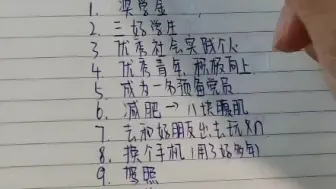 1. 奖学金
2. 三好学生
3. 优秀社会实践个人
4. 优秀青年,积极向上
5. 成为一名预备党员
6. 减肥→八块腹肌
7. 去和好朋友出去玩×n
8. 换个手机(用了好多年)
9. 驾照